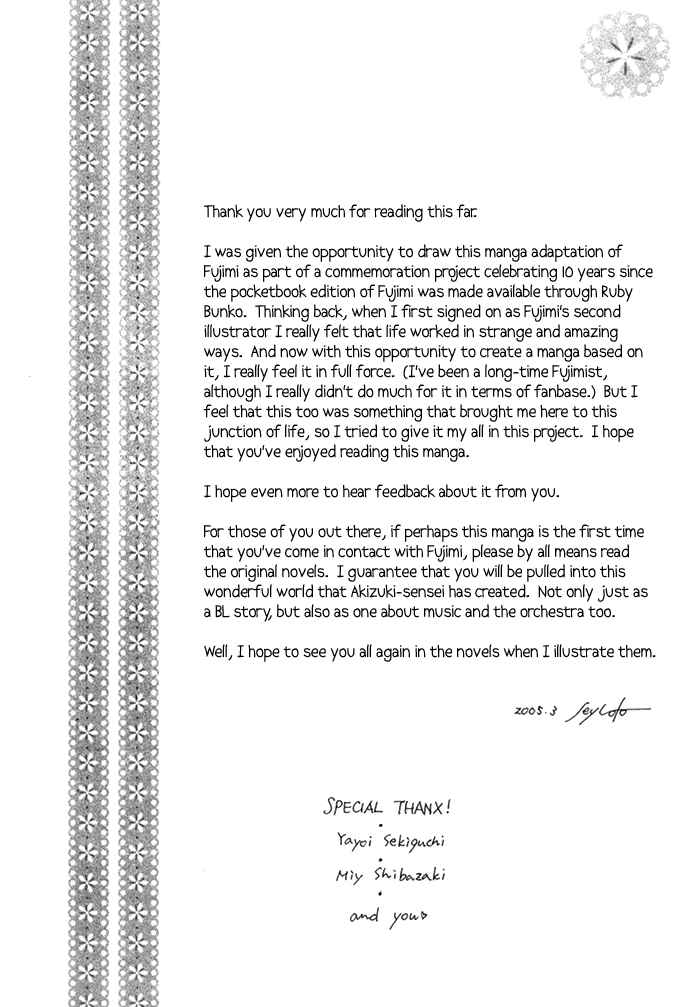 Thank you very much for reading this far.
I was given the opportunity to draw this manga adaptation of
Fujimi as part of a commemoration project celebrating 10 years since
the pocketbook edition of Fujimi was made available through Ruby
Bunko. Thinking back, when I first signed on as Fujimi's second
illustrator I really felt that life worked in strange and amazing
ways. And now with this opportunity to create a manga based on
it, I really feel it in full force. (I've been a long-time Fujimist,
although I really didn't do much for it in terms of fanbase.) But I
feel that this too was something that brought me here to this
junction of life, so I tried to give it my all in this project. I hope
that you've enjoyed reading this manga.
I hope even more to hear feedback about it from you.
For those of you out there, if perhaps this manga is the first time
that you've come in contact with Fujimi, please by all means read
the original novels. I guarantee that you will be pulled into this
wonderful world that Akizuki-sensei has created. Not only just as
a BL story, but also as one about music and the orchestra too.
Well, I hope to see you all again in the novels when I illustrate them.
2005.3
SPECIAL THANX!
Yayoi Sekiguchi
Miy Shibazaki
and you♡